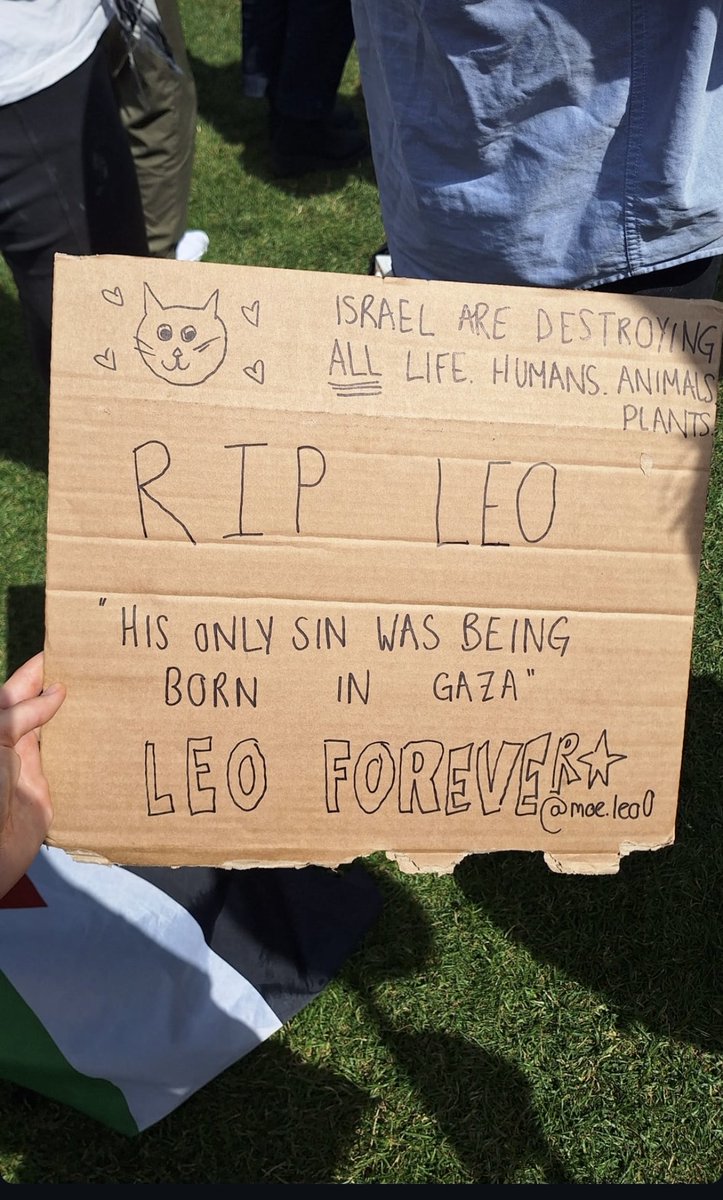 ISRAEL ARE DESTROYING
ALL LIFE. HUMANS. ANIMALS
PLANTS.
RIP LEO
"HIS ONLY SIN WAS BEING
BORN IN GAZA"
LEO FOREVER
@moe.leo0